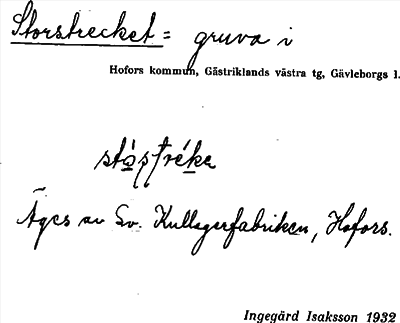 Storstrecket = gruva i
Hofors kommun, Gästriklands västra tg, Gävleborgs l.
Äges av Sv. Kullagerfabriken, Hofors.
Ingegärd Isaksson 1932